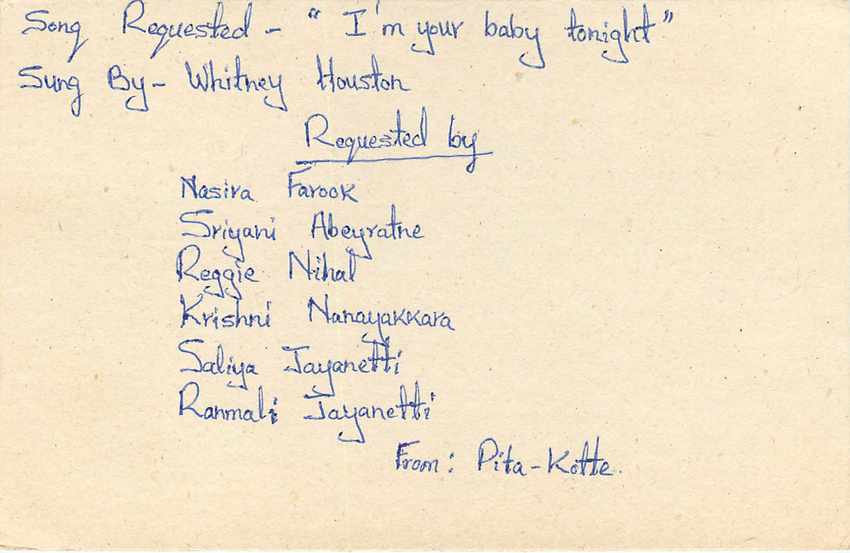 Song Requested - "I'm your baby tonight"
Sung By - Whitney Houston
Requested by
Nasira Farook
Sriyani Abeyratne
Reggie Nihal
Krishni Nanayakkara
Saliya Jayanetti
Ranmali Jayanetti
From: Pita-Kotte.